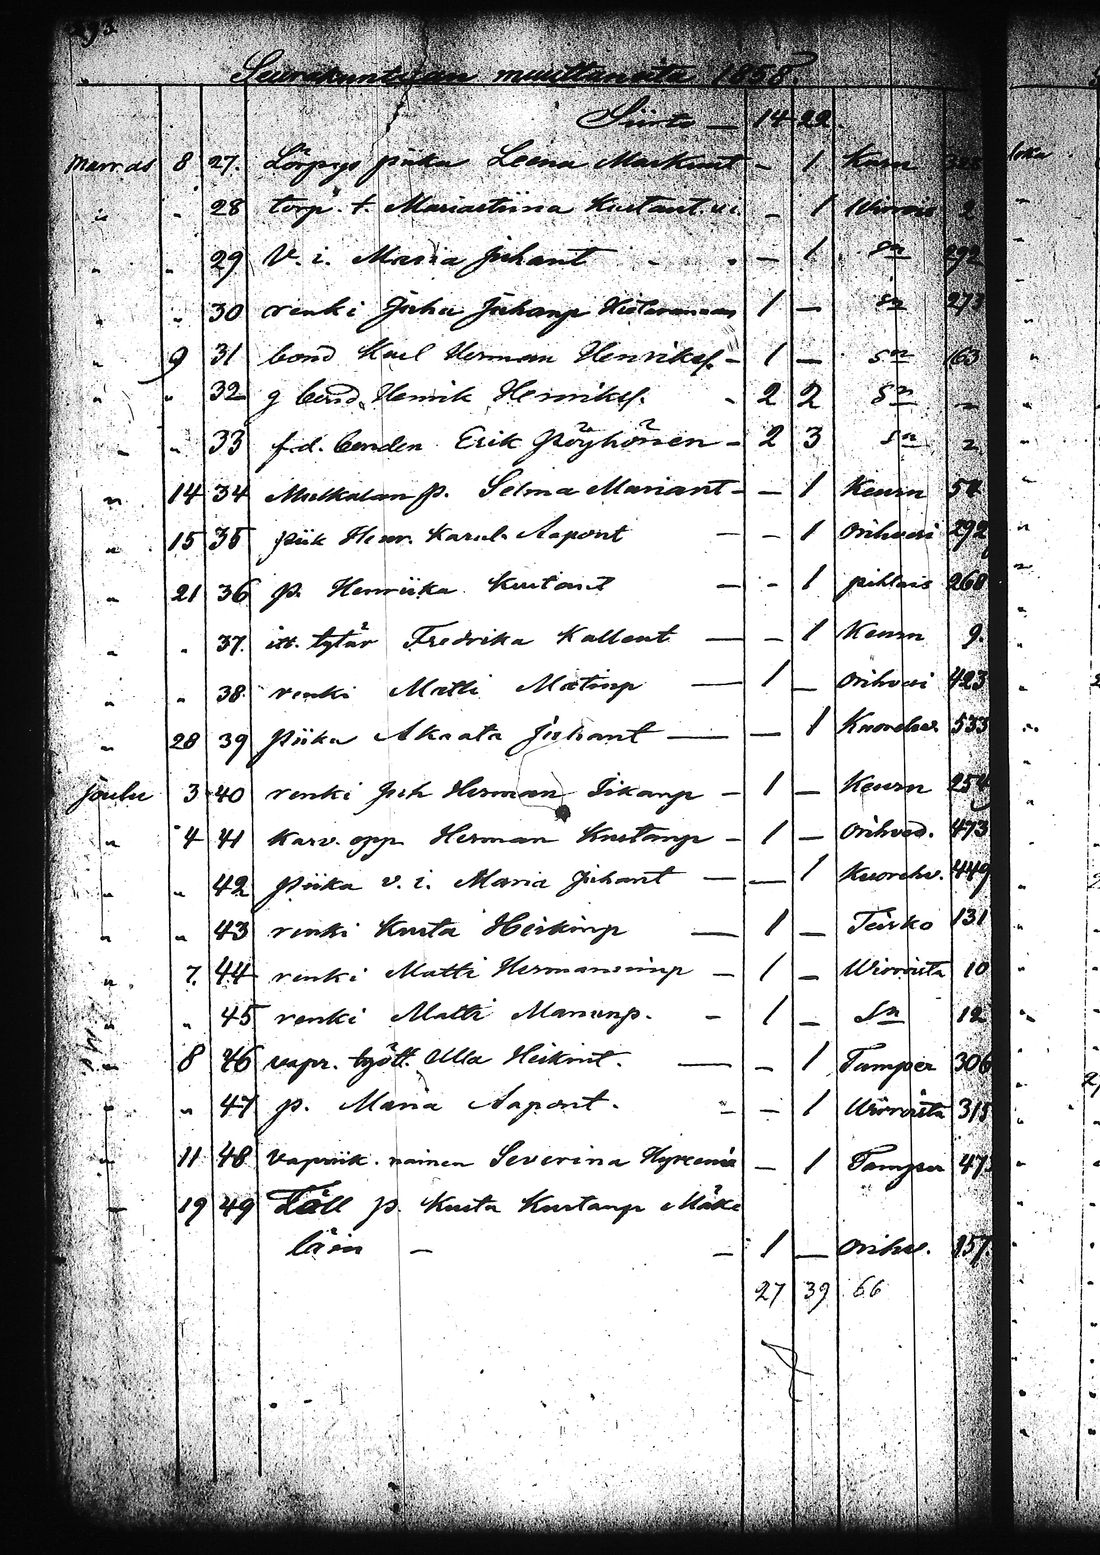 293
Seurakuntaan muuttaneita 1858.
Siirto — 14 22.
Marr.as 8 27. piika Leena - 1 Keuru
" " 28 torp. t. Mariastiina Kustant. - 1 2
" " 29 V. i. Maria Juhant - 1 sn 292
" " 30 renki Juha Juhanp 1 — sn 273
" 9 31 bond Karl Herman Henriksf. - 1 — sn 163
" " 32 g bond. Henrik Henriksf. - 2 2 sn —
" " 33 f.d. bonden Erik Pöyhönen - 2 3 sn 2
" 14 34 p. Selma Mariant - - 1 Keuru
" 15 35 piik Henr. Karol. Aapont — - 1 Orihvesi 292
" 21 36 p. Henriika Kustant — - 1 pihlais 268
" " 37. itt. tytär Fredrika Kallent — - 1 Keuru 9.
" " 38. renki Matti Matinp — 1 — Orihvesi 423
" 28 39 Piika Akaata Juhant — — 1 Kuorehv. 533
Joulu 3 40 renki Juh Herman Iikanp - 1 — Keuru 254
" 4 41 karv. opp. Herman Kustanp - 1 — Orihves. 473
" " 42 Piika v. i. Maria Juhant — — 1 Kuorehv. 449
" " 43 renki Kusta Heikinp — 1 — Teisko 131
" 7. 44 renki Matti Hermanninp - 1 - Wirroista 10
" " 45 renki Matti Mananp. - 1 - sn 12
" 8 46 vapr. tyött. Ulla Heikint. — - 1 Tamper 306
" " 47 p. Maria Aapont. - - 1 Wirroista 315
" 11 48 vapriik. nainen Severina - 1 Tamper 47
— 19 49 Täll p. Kusta Kustanp Mäke
läin — - 1 — Orihv. 157
27 39 66